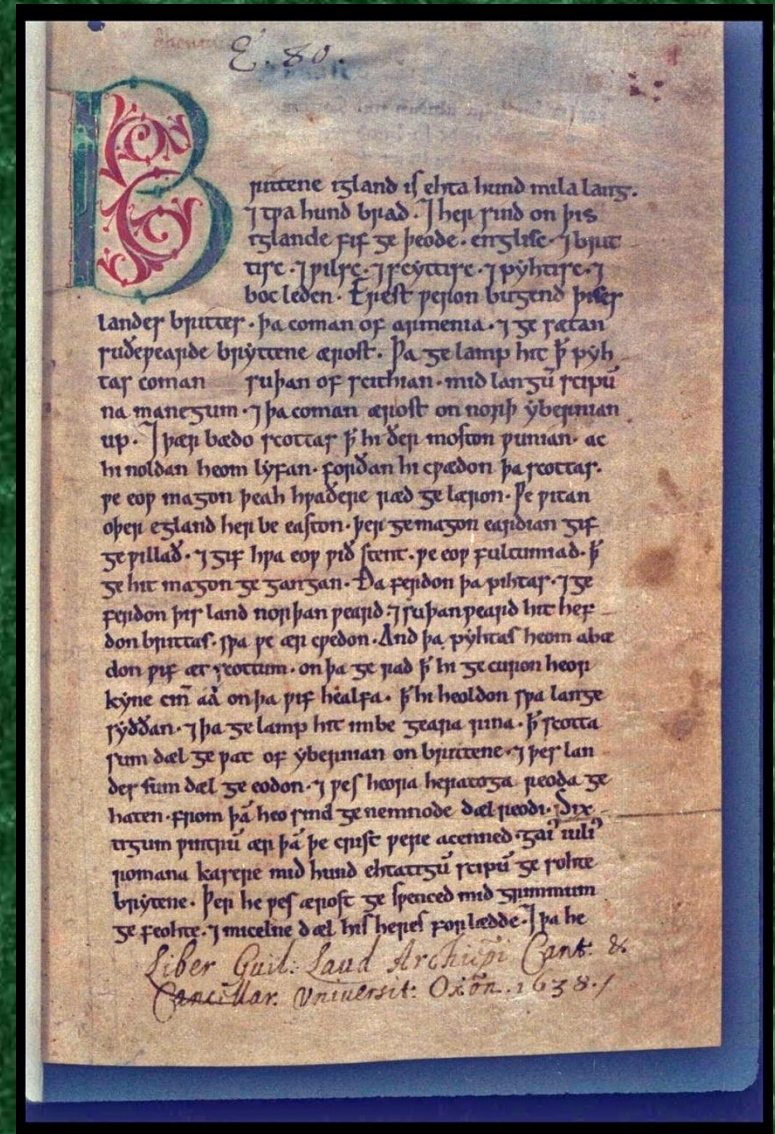 E. 80.
Brittene igland is ehta hund mila lang.
⁊ tƿa hund brad. ⁊ her sind on þis
iglande fif ge þeode. englisc. ⁊ brit
tisc. ⁊ ƿilsc. ⁊ scyttisc. ⁊ pyhtisc. ⁊
boc leden. Erest ƿeron bugend þises
landes brittes. þa coman of armenia. ⁊ ge sætan
suðeƿearde bryttene ærost. Þa ge lamp hit ꝥ pyh
tas coman suþan of scithian. mid langū scipū
na manegum. ⁊ þa coman ærost on norþ ybernian
up. ⁊ þær bædo scottas ꝥ hi ðer moston ƿunian. ac
hi noldan heom lyfan. forðan hi cƿædon þa scottas.
ƿe eoƿ magon þeah hƿaðere ræd ge læron. Ƿe ƿitan
oþer egland her be easton. þer ge magon eardian gif
ge ƿillað. ⁊ gif hƿa eoƿ ƿið stent. ƿe eoƿ fultumiad. ꝥ
ge hit magon ge gangan. Ða ferdon þa pihtas. ⁊ ge
ferdon þis land norþan ƿeard. ⁊ suþan ƿeard hit hef
don brittas. sƿa ƿe ær cƿedon. And þa pyhtas heom abæ
don ƿif æt scottum. on þa ge rad ꝥ hi ge curon heor
kyne cin̄ aa on þa ƿif healfa. ꝥ hi heoldon sƿa lange
syððan. ⁊ þa ge lamp hit imbe geara rina. ꝥ scotta
sum dæl ge ƿat of ybernian on brittene. ⁊ þes lan
des sum dæl ge eodon. ⁊ ƿes heora heratoga reoda ge
haten. from þā heo sind ge nemnode dæl reodi. Six
tigum ƿintrū ær þā þe crist ƿere acenned. gai' iuli'
romana kasere mid hund ehtatigū scipū ge sohte
brytene. Þer he ƿes ærost ge sƿenced mid grimmum
ge feohte. ⁊ micelne dæl his heres forlædde. ⁊ þa he
Liber Guil: Laud Archiēpi Cant: &
Cancellar. Universit: Oxōn. 1638./